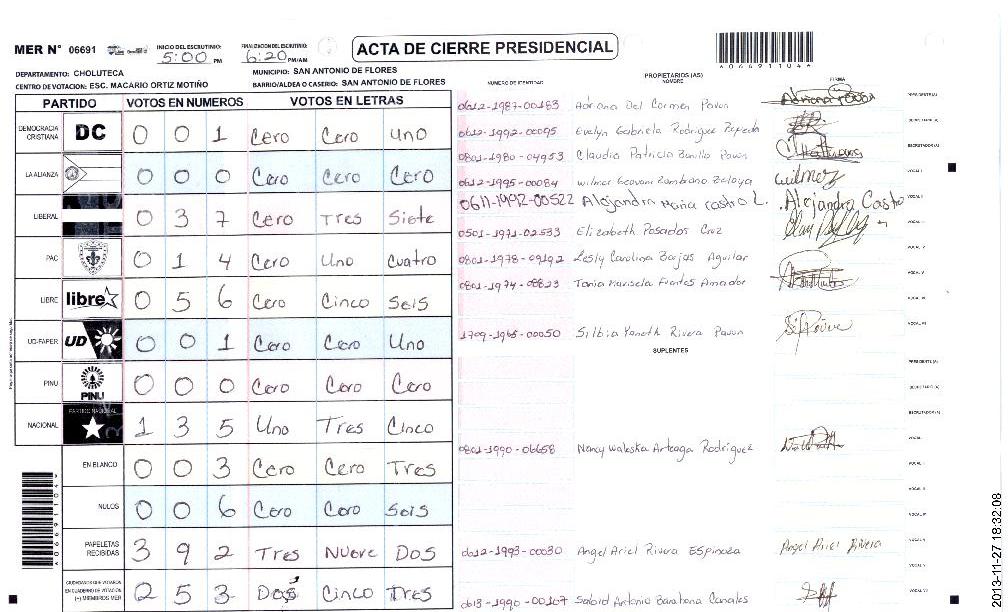 MER N° 06691
INICIO DEL ESCRUTINIO: 5:00 PM
FINALIZACION DEL ESCRUTINIO: 6:20 PM/AM
ACTA DE CIERRE PRESIDENCIAL
4066911044
DEPARTAMENTO: CHOLUTECA
MUNICIPIO: SAN ANTONIO DE FLORES
CENTRO DE VOTACION: ESC. MACARIO ORTIZ MOTIÑO
BARRIO/ALDEA O CASERIO: SAN ANTONIO DE FLORES
PARTIDO VOTOS EN NUMEROS VOTOS EN LETRAS
DEMOCRACIA CRISTIANA DC 0 0 1 Cero Cero Uno
LA ALIANZA 0 0 0 Cero Cero Cero
LIBERAL 0 3 7 Cero Tres Siete
PAC 0 1 4 Cero Uno Cuatro
LIBRE libre 0 5 6 Cero Cinco Seis
UD-FAPER UD 0 0 1 Cero Cero Uno
PINU PINU 0 0 0 Cero Cero Cero
NACIONAL PARTIDO NACIONAL 1 3 5 Uno Tres Cinco
EN BLANCO 0 0 3 Cero Cero Tres
NULOS 0 0 6 Cero Cero Seis
PAPELETAS RECIBIDAS 3 9 2 Tres Nueve Dos
CIUDADANOS QUE VOTARON EN CUADERNO DE VOTACION (+) MIEMBROS MER 2 5 3 Dos Cinco Tres
NUMERO DE IDENTIDAD
PROPIETARIOS (AS)
NOMBRE
FIRMA
0612-1987-00183 Adriana Del Carmen Pavon
PRESIDENTE(A)
0612-1992-00095 Evelyn Gabriela Rodriguez Zepeda
SECRETARIO (A)
0801-1980-04953 Claudia Patricia Bonilla Pavon
ESCRUTADOR(A)
0612-1995-00084 Wilmer Geovani Zambrano Zelaya Wilmer
VOCAL I
0611-1992-00522 Alejandra María Castro L. Alejandra Castro
0501-1971-02533 Elizabeth Posados Cruz
0801-1978-09192 Lesly Carolina Borjas Aguilar
0801-1974-08823 Tania Marisela Fuentes Amador
1709-1965-00050 Silbia Yaneth Rivera Pavon
SUPLENTES
PRESIDENTE(A)
SECRETARIO (A)
ESCRUTADOR(A)
0801-1990-06658 Nancy Waleska Arteaga Rodriguez
VOCAL I
0612-1993-00030 Angel Ariel Rivera Espinoza Angel Ariel Rivera
0613-1990-00107 Sabid Antonio Barahona Canales
2013-11-27 18:32:08